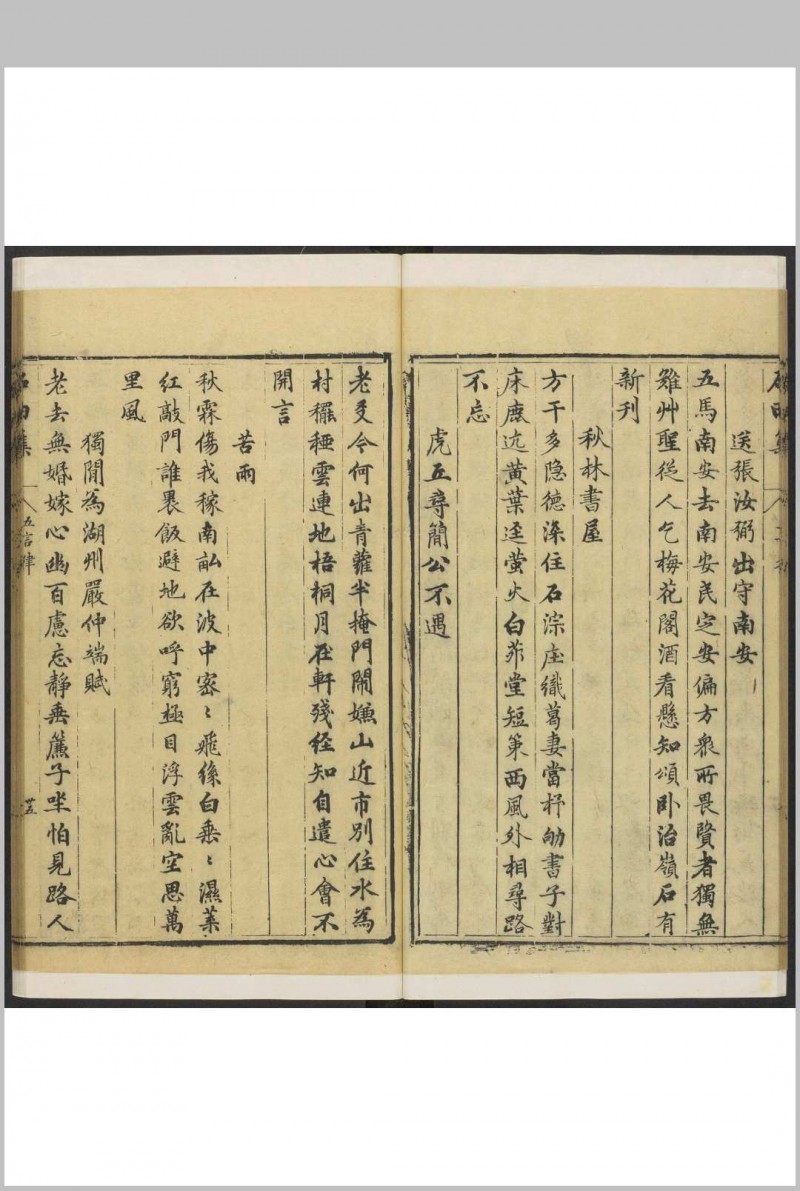 石田集
送張汝弼出守南安
五馬南安去南安民定安偏方衆所畏賢者獨無
難艸聖從人乞梅花閣酒看懸知頌卧治嶺石有
新刊
秋林書屋
方干多隐德深住石淙庄織葛妻當杼劬書子對
床鹿迒黄葉迳萤火白茆堂短策西風外相尋路
不忘
虎丘尋簡公不遇
老叟今何出青蘿半掩門鬧嫌山近市別住水為
村䆉稏雲連地梧桐月在軒殘经知自遣心會不
開言
苦雨
秋霖傷我稼南畆在波中密〻飛絲白垂〻濕葉
紅敲門誰畏飯避地欲呼窮極目浮雲亂空思萬
里風
獨閒為湖州嚴仲端賦
老去無婚嫁心幽百慮忘靜垂簾子坐怕見路人
石田集
五言律
廿五